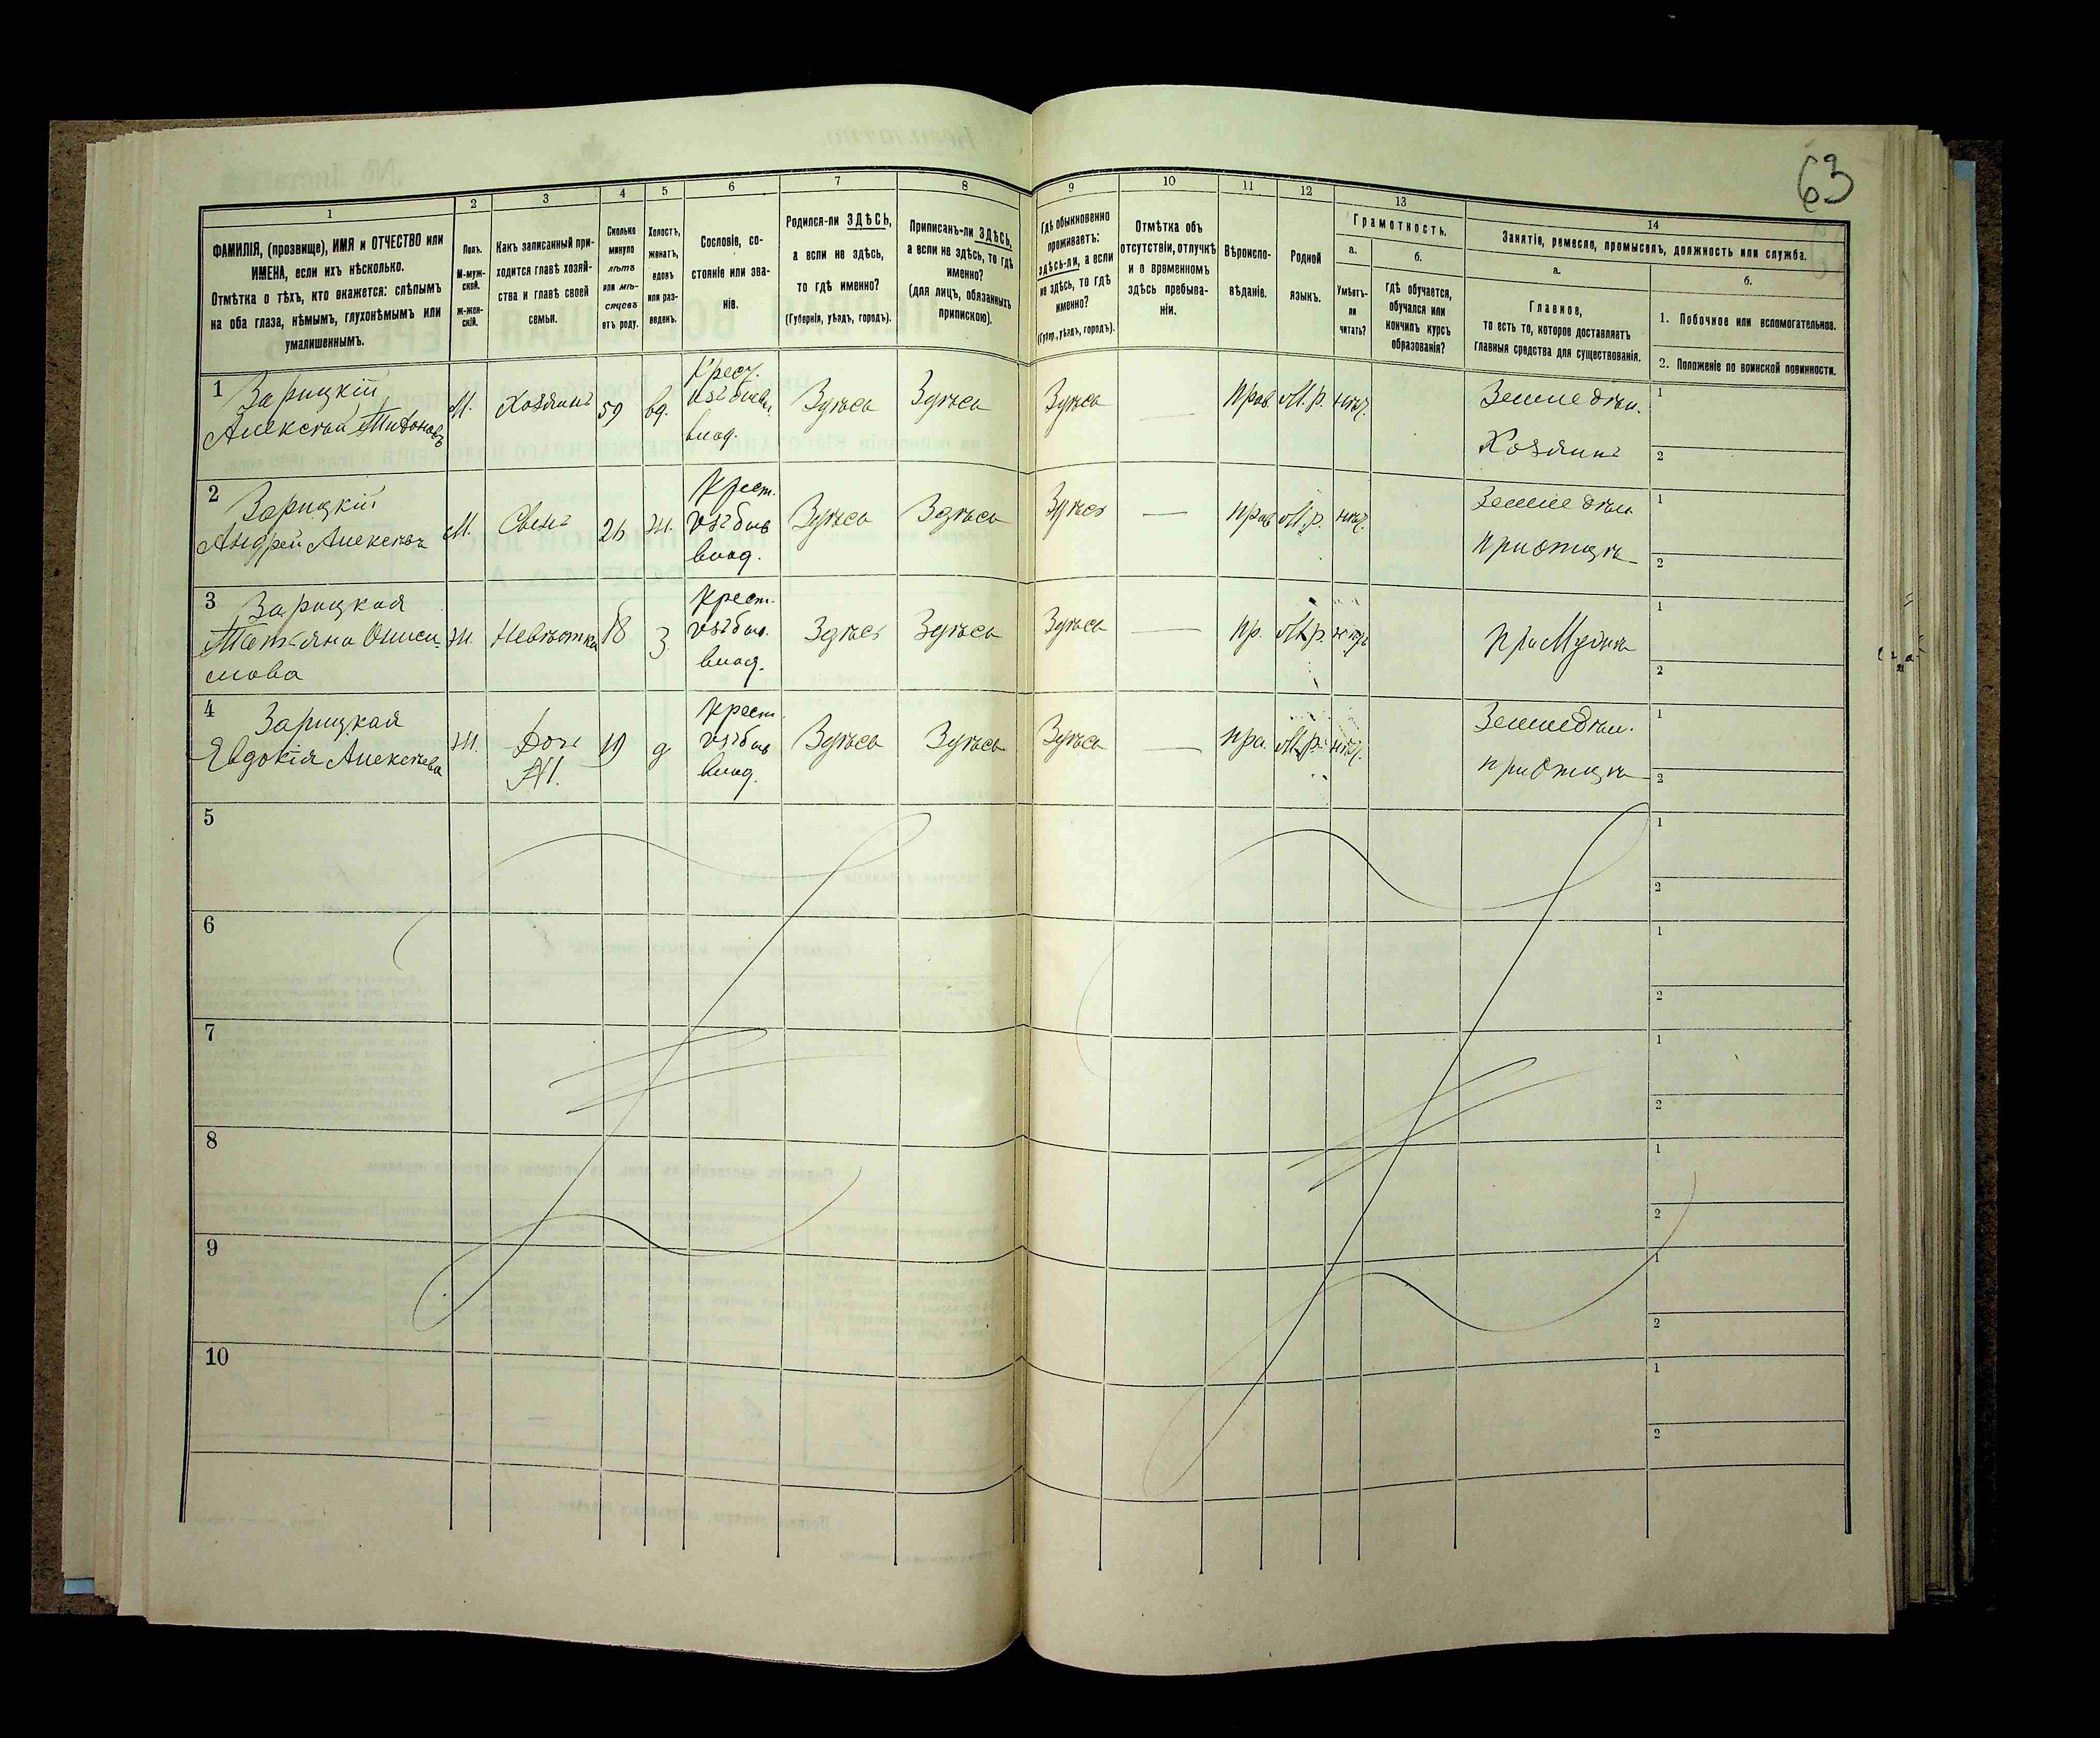 63
1 2 3 4 5 6 7 8 9 10 11 12 13 14
ФАМИЛІЯ, (прозвище), ИМЯ и ОТЧЕСТВО или
ИМЕНА, если ихъ нѣсколько.
Отмѣтка о тѣхъ, кто окажется: слѣпымъ
на оба глаза, нѣмымъ, глухонѣмымъ или
умалишеннымъ.
Полъ.
М-муж-
ской.
Ж-жен-
скій.
Какъ записанный при-
ходится главѣ хозяй-
ства и главѣ своей
семьи.
Сколько
минуло
лѣтъ
или мѣ-
сяцевъ
отъ роду.
Холостъ,
женатъ,
вдовъ
или раз-
веденъ.
Сословіе, со-
стояніе или зва-
ніе.
Родился-ли ЗДѢСЬ,
а если не здѣсь,
то гдѣ именно?
(Губернія, уѣздъ, городъ).
Приписанъ-ли ЗДѢСЬ,
а если не здѣсь, то гдѣ
именно?
(для лицъ, обязанныхъ
припискою).
Гдѣ обыкновенно
проживаетъ:
здѣсь-ли, а если
не здѣсь, то гдѣ
именно?
(Губер., уѣздъ, городъ).
Отмѣтка объ
отсутствіи, отлучкѣ
и о временномъ
здѣсь пребыва-
ніи.
Вѣроиспо-
вѣданіе.
Родной
языкъ.
Грамотность.
а.
Умѣетъ-
ли
читать?
б.
гдѣ обучается,
обучался или
кончилъ курсъ
образованія?
Занятіе, ремесло, промыселъ, должность или служба.
а.
Главное,
то есть то, которое доставляетъ
главныя средства для существованія.
б.
1. Побочное или вспомогательное.
2. Положеніе по воинской повинности.
1 Зарицкій
Алексѣй
М. Хозяинъ 59 вд.
влад.
Здѣсь Здѣсь Здѣсь — Прав. М.р. нѣт.
Земледѣл.
Хозяинъ
1
2
2 Зарицкій
Андрей Алексѣев
М. Сынъ 26 ж.
Крест.
влад.
Здѣсь Здѣсь Здѣсь — Прав М.р. нѣт.
Земледѣл
при отцѣ
1
2
3 Зарицкая
Татьяна Ониси-
мова
Ж. Невѣстка 18 з
Крест.
влад.
Здѣсь Здѣсь Здѣсь — Пр. М.р. нѣт
при Мужѣ
1
2
4 Зарицкая
Явдокія Алексѣева
Ж. Дочь
№1.
19 д
Крест.
влад.
Здѣсь Здѣсь Здѣсь — Пра. М.р. нѣт.
Земледѣл.
при отцѣ
1
2
5
1
2
6
1
2
7
1
2
8
1
2
9
1
2
10
1
2